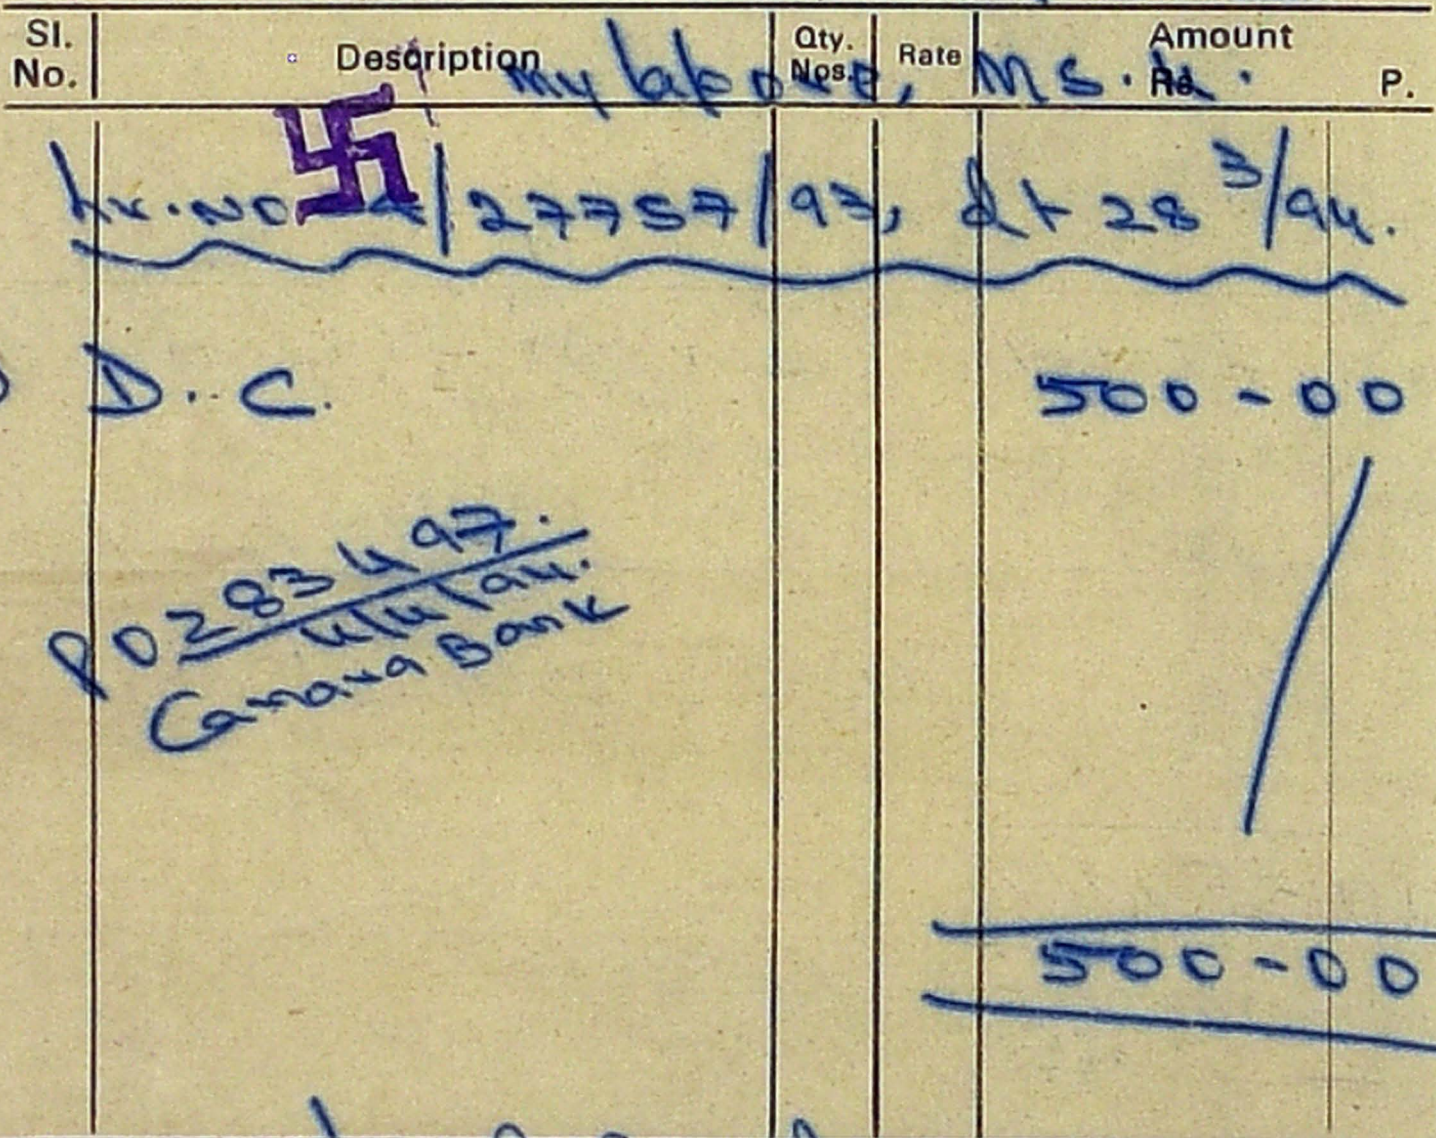 Sl. No. Description Qty. Nos. Rate Amount Rs. P.
Mylapore, Ms.4.
Lr.No /27757/93, dt 28 3/94.
D.C. 500-00
PO 283497.
4/4/94.
Canara Bank
500-00